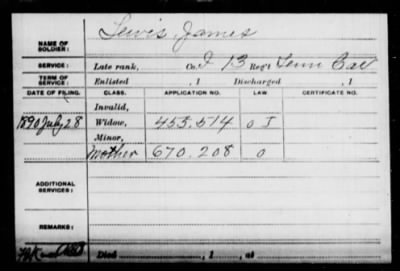 Lewis, James
NAME OF SOLDIER:
SERVICE: Late rank, Co. I 13 Reg't Tenn Cav
TERM OF SERVICE: Enlisted , 1 Discharged , 1
DATE OF FILING. CLASS. APPLICATION NO. LAW. CERTIFICATE NO.
Invalid,
1890 July 28 Widow, 455.514 O I
Minor,
Mother 670.208 O
ADDITIONAL SERVICES:
REMARKS:
Died , 1 , at